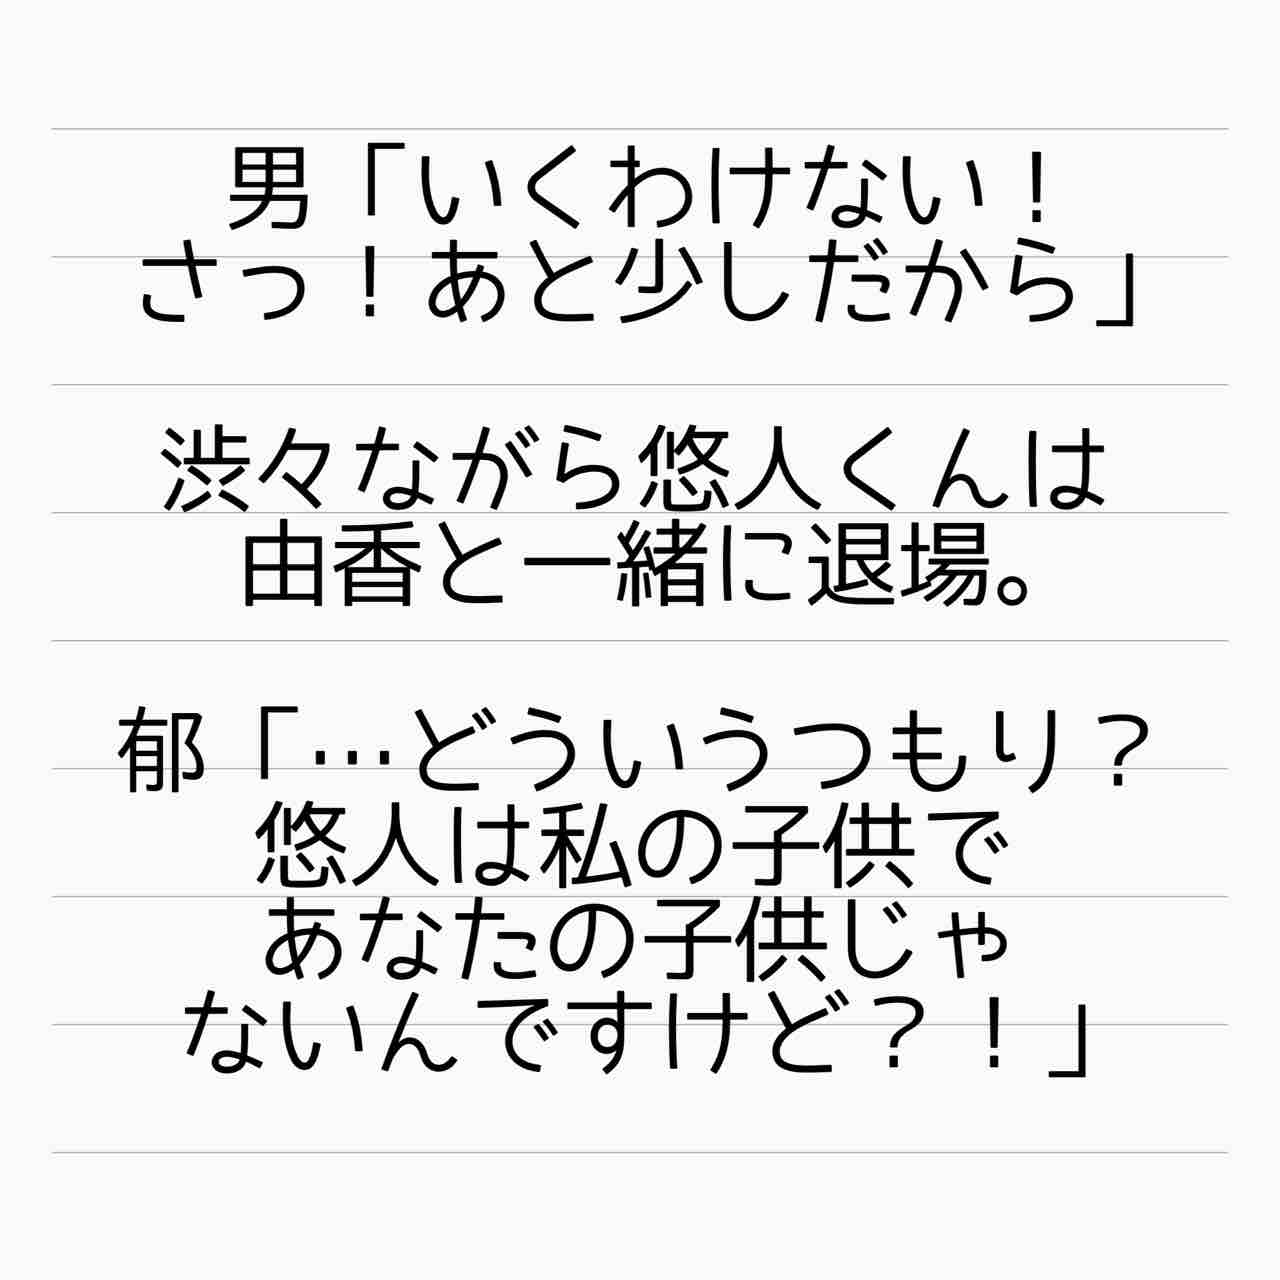 男「いくわけない！
さっ！あと少しだから」
渋々ながら悠人くんは
由香と一緒に退場。
郁「…どういうつもり？
悠人は私の子供で
あなたの子供じゃ
ないんですけど？！」